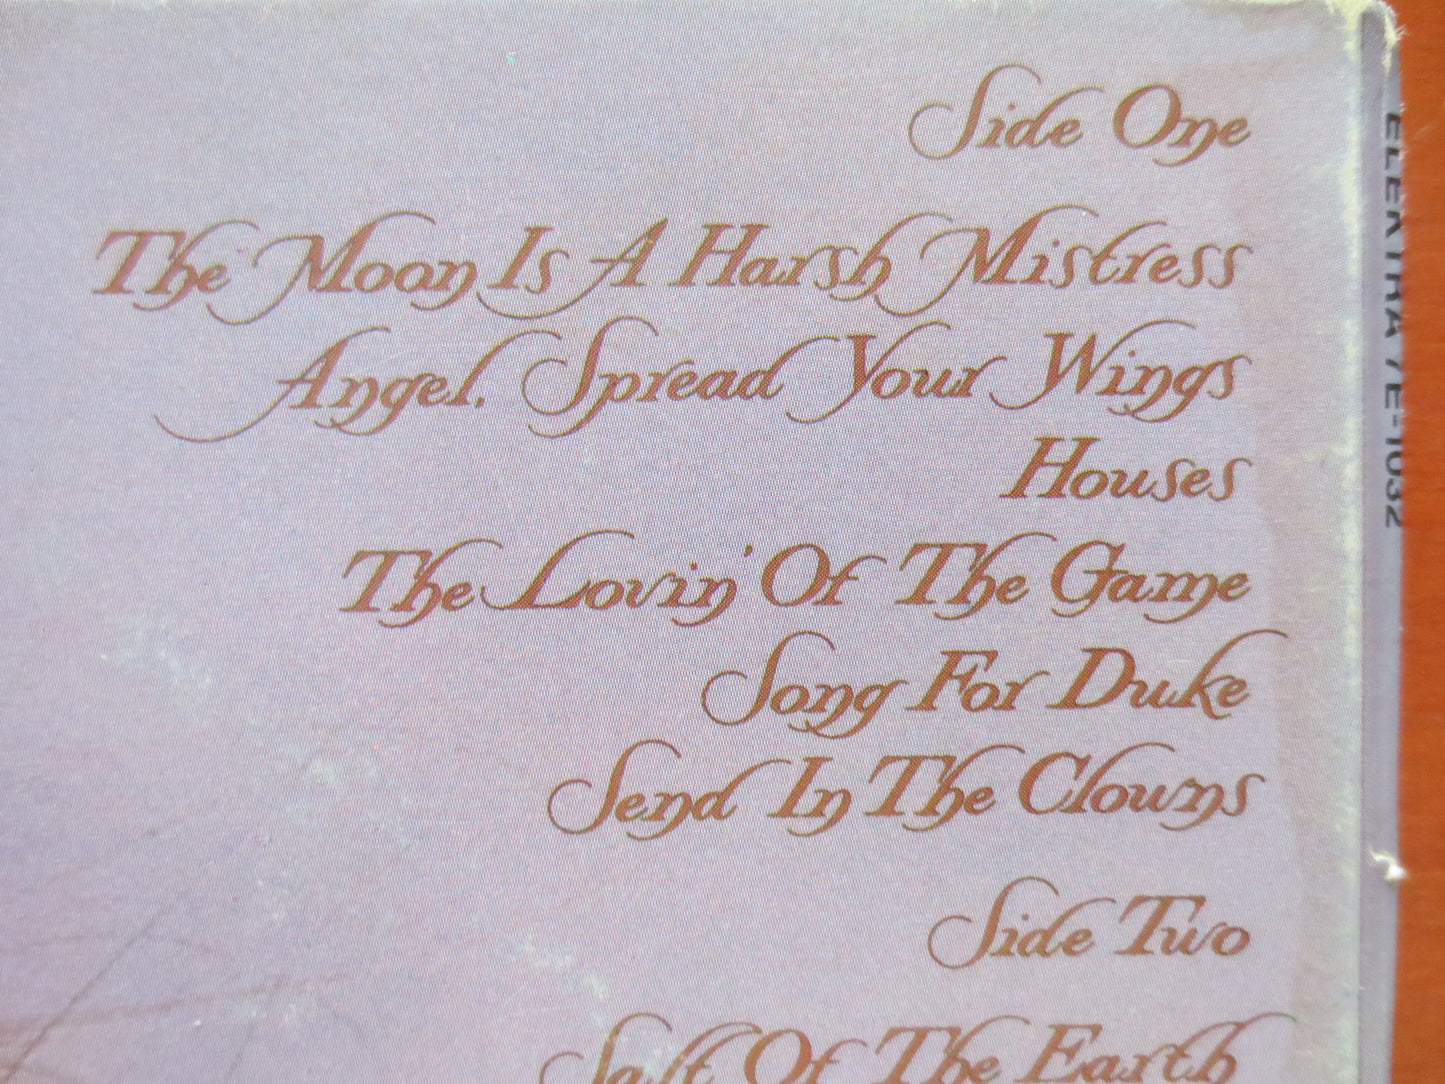 Side One
The Moon Is A Harsh Mistress
Angel, Spread Your Wings
Houses
The Lovin' Of The Game
Song For Duke
Send In The Clowns
Side Two
Salt Of The Earth
ELEKTRA 7E-1032